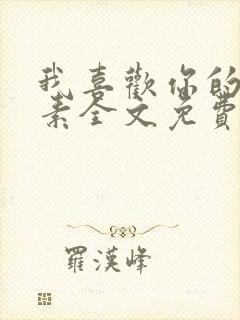 我喜歡你的
素全文免費
羅漢峰